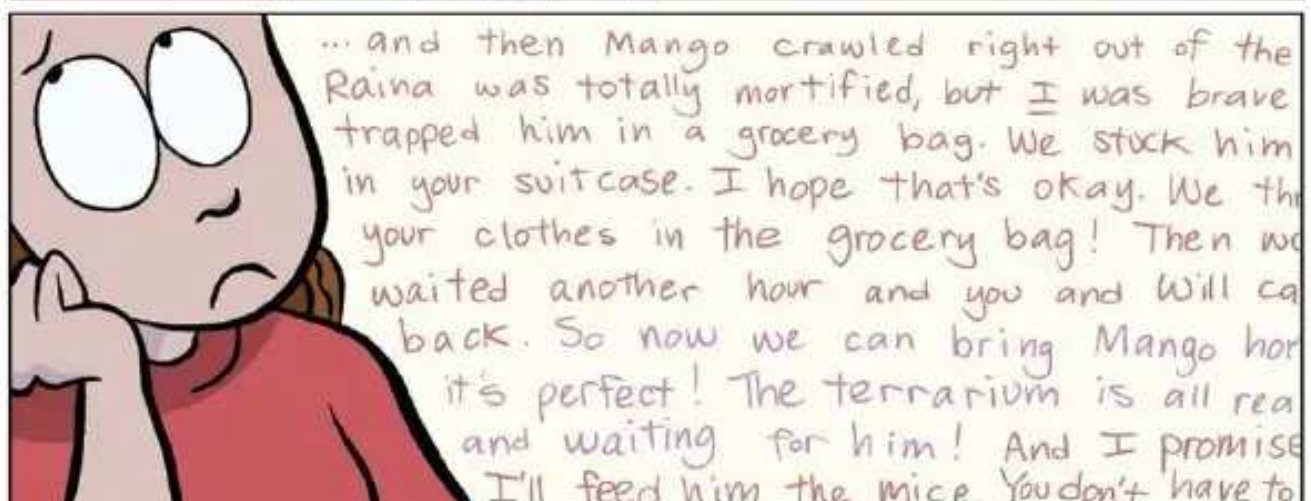 ... and then Mango crawled right out of the
Raina was totally mortified, but I was brave
trapped him in a grocery bag. We stuck him
in your suitcase. I hope that's okay. We
your clothes in the grocery bag! Then
waited another hour and you and Will
back. So now we can bring Mango
it's perfect! The terrarium is all
and waiting for him! And I promise
I'll feed him the mice. You don't have to